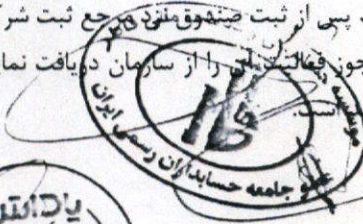 پس از ثبت صندوق نزد مرجع ثبت شرک
فعالیت آن را از سازمان دریافت نما
است.
موسسه
عضو جامعه حسابداران رسمی ایران